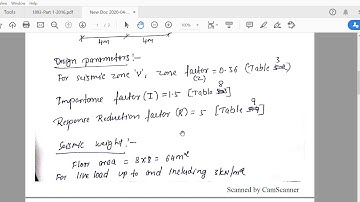 Tools
1893-Part 1-2016.pdf
New Doc 2020-04-...
4m
4m
Design parameters :-
For seismic zone 'V', zone factor = 0.36 (Table 3
(Z)
Importance factor (I) = 1.5 [Table 8]
Response Reduction factor (R) = 5 [Table 9]
Seismic weight :-
Floor area = 8x8 = 64m²
For live load up to and including 3kN/m²
Scanned by CamScanner